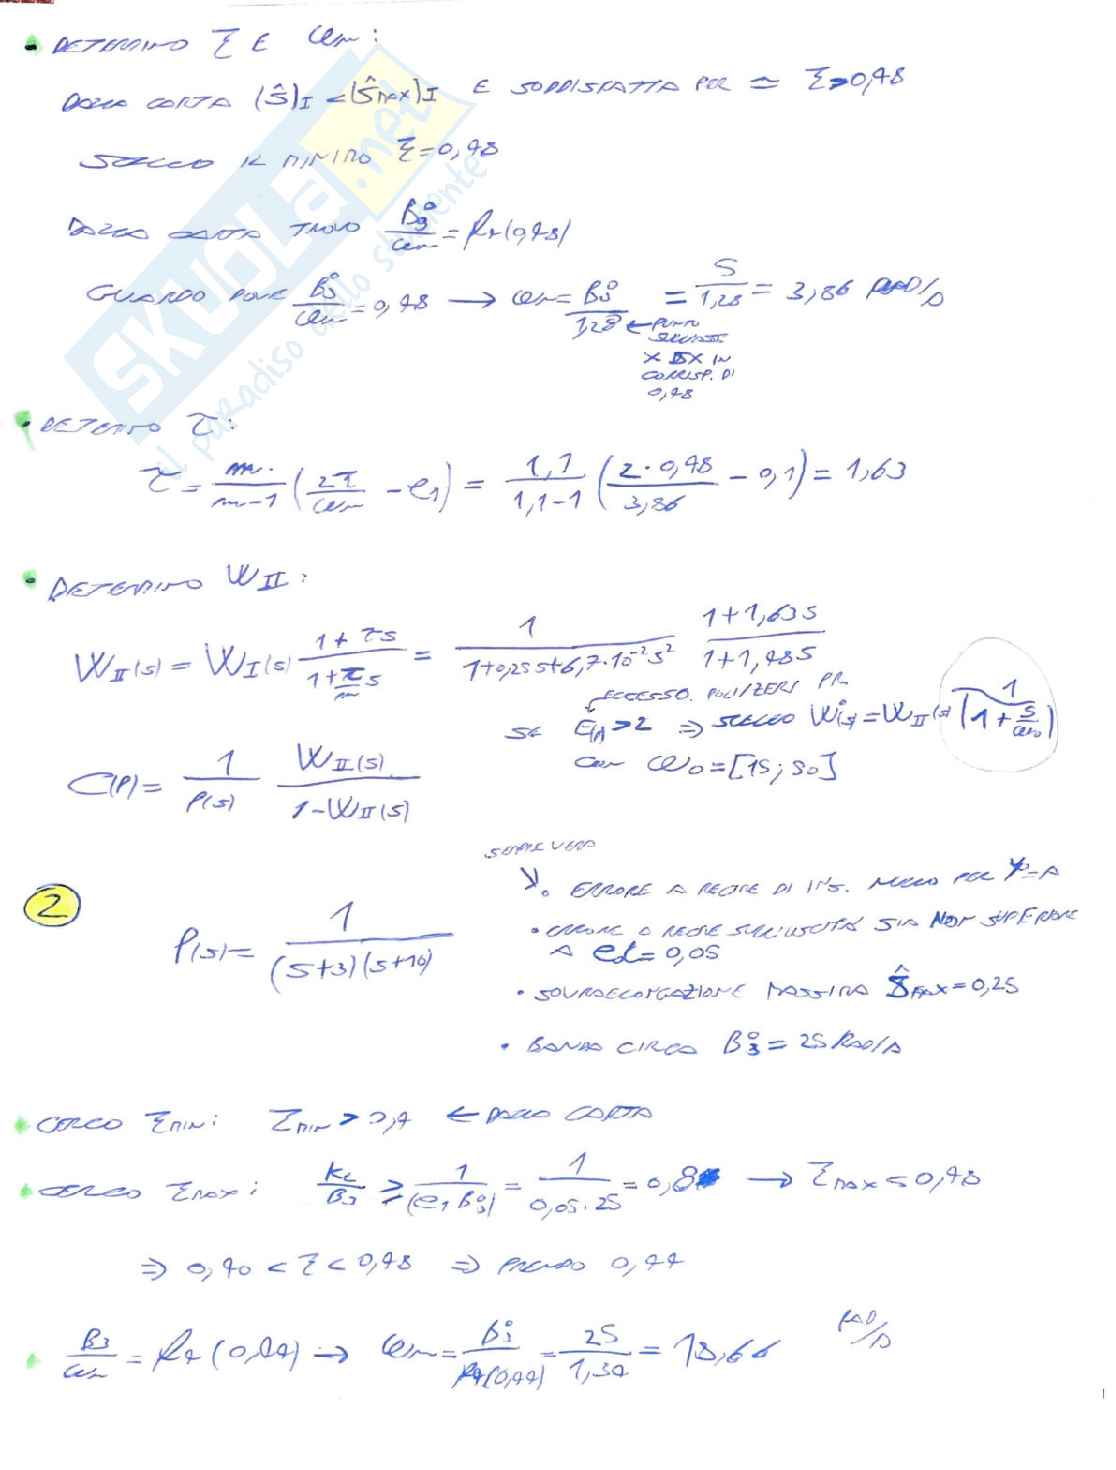 • DETERMINO ξ E ωn:
DALLA CARTA (Ŝ)I < (Ŝmax)I E SODDISFATTA PER = ξ>0,48
SCELGO IL MINIMO ξ=0,48
DALLA CARTA TROVO B3°/ωn = R4(0,48)
GUARDO DOVE B3°/ωn = 0,48 → ωn = B3°/1,28 = 5/1,28 = 3,86 RAD/s
← PUNTO
X DX IN
CORRISP. DI
0,48
• DETERMINO τ:
τ = m/(m-1) (2ξ/ωn - e1) = 1,1/(1,1-1) (2·0,48/3,86 - 0,1) = 1,63
• DETERMINO WII:
WII(s) = WI(s) (1+τs)/(1+τ/m s) = 1/(1+0,25s+6,7·10⁻²s²) (1+1,63s)/(1+1,48s)
ECCESSO POLI/ZERI PR
SE E(P)>2 ⇒ SCELGO W°(s) = WII(s) 1/(1+s/ω0)
CON ω0=[15;50]
C(P) = 1/P(s) WII(s)/(1-WII(s))
SEMPRE VERO
2 P(s) = 1/((s+3)(s+10))
• ERRORE A REGIME DI INS. NULLO PER Y°=A
• ERRORE A REGIME SULL'USCITA SIA NON SUPERIORE
A ed=0,05
• SOVRAELONGAZIONE MASSIMA ŜMAX=0,25
• BANDA CIRCA B3°=25 RAD/s
• CERCO ξMIN: ξMIN > 0,4 ← DALLA CARTA
• CERCO ξMAX: KL/B3 ≥ 1/(e1 B3°) = 1/(0,05·25) = 0,8 → ξMAX ≤ 0,48
⇒ 0,40 < ξ < 0,48 ⇒ PRENDO 0,44
• B3/ωn = R4(0,44) → ωn = B3°/R4(0,44) = 25/1,34 = 18,66 RAD/s
SKUOLA.net
il paradiso dello studente